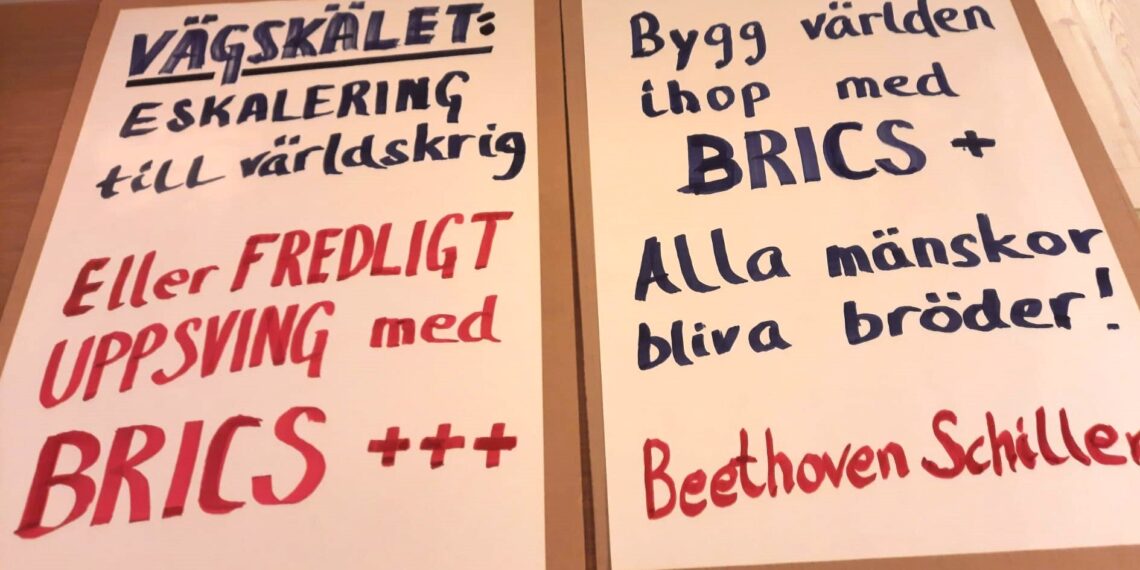 VÄGSKÄLET:
ESKALERING
till världskrig
Eller FREDLIGT
UPPSVING med
BRICS +++
Bygg världen
ihop med
BRICS +
Alla mänskor
bliva bröder!
Beethoven Schiller